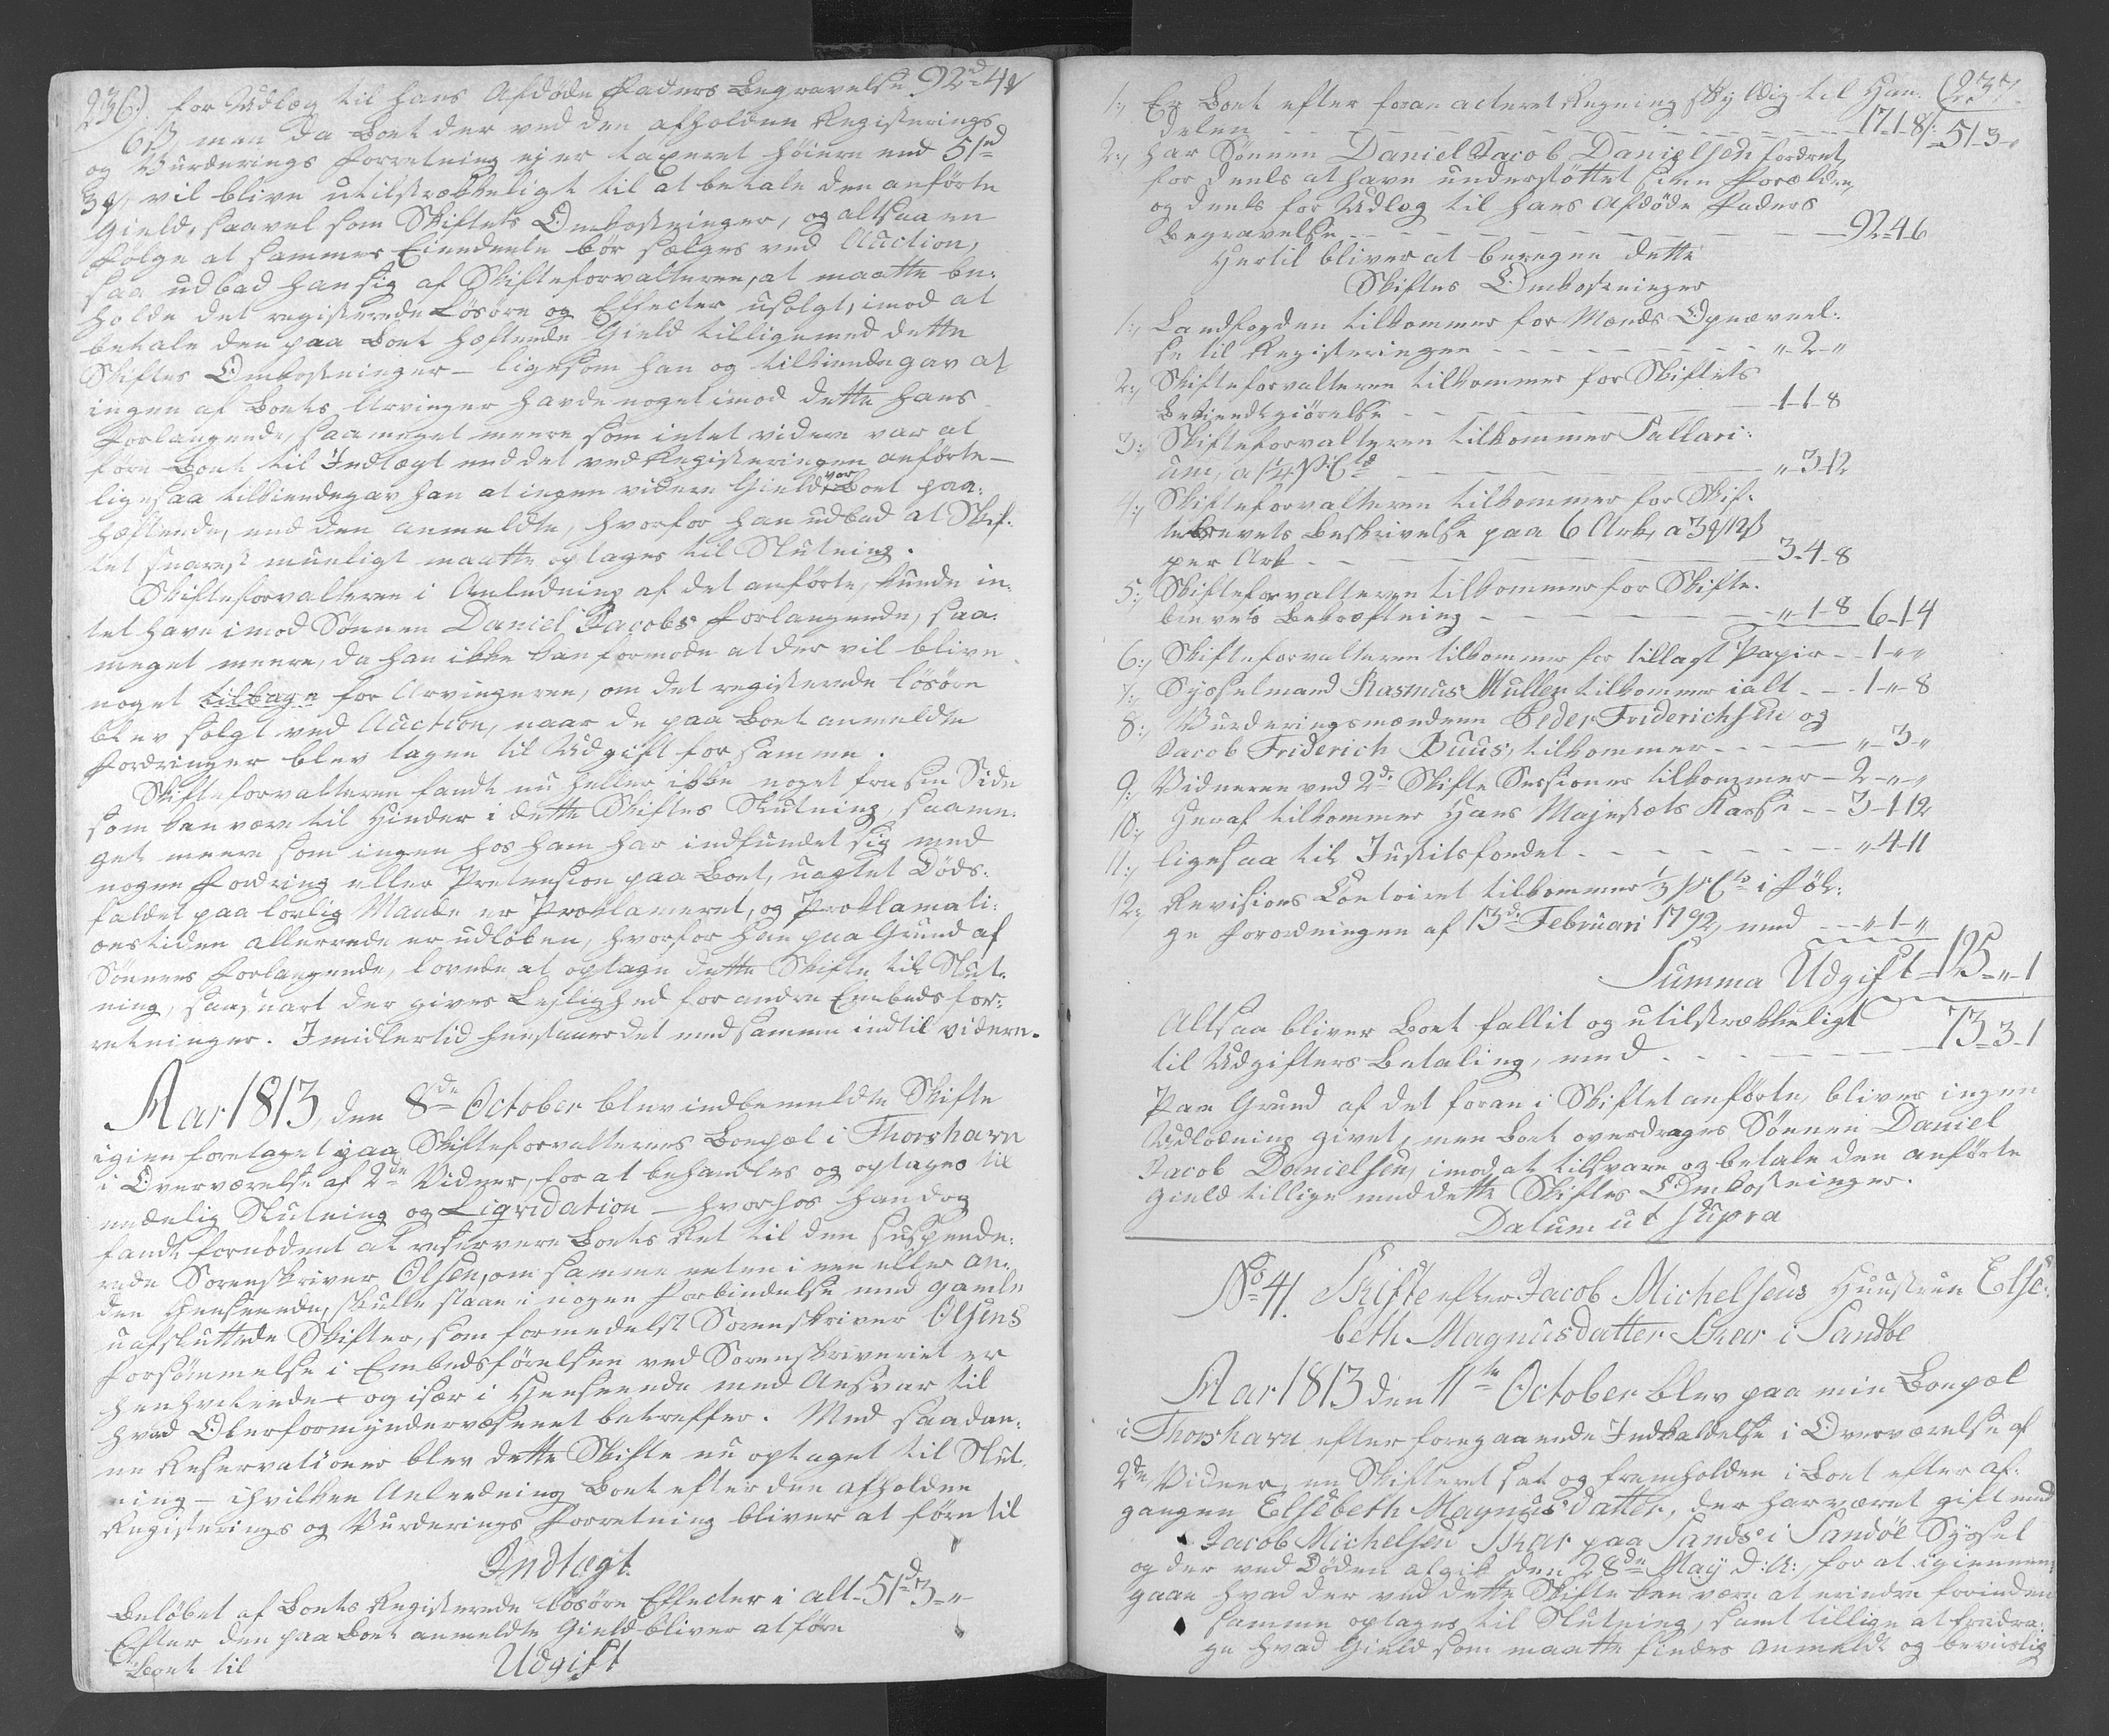 236). for Udlæg til hans Afdøde Faders Begravelse 92rd 4 ⅟
6 ß, men da Boet der ved den afholdne Registerings
og Vurderings Forretning ej er taxeret høiere end 51rd
3 ⅟, vil blive utilstrækkeligt til at betale den anførte
Gield, saavel som Skiftets Omkostninger, og altsaa en
Følge at sammes Eiendeele bør sælges ved Auction,
saa udbad han sig af Skifteforvalteren, at maatte be-
holde det registerede Løsøre og Effecter usolgt, imod at
betale den paa Boet hæftende Gield tilligemed dette
Skiftes Omkostninger – ligesom han og tilkiendegav at
ingen af Boets Arvinger havde noget imod dette hans
Forlangende, saameget meere som intet videre var at
føre Boet til Indtægt end det ved Registeringen anførte –
ligesaa tilkiendegav han at ingen videre Gield var Boet paa-
hæftende, end den anmeldte, hvorfor han udbad at Skif-
tet snarest mueligt maatte optages til Slutning.
Skifteforvalteren i Anledning af det anførte, kunde in-
tet have imod Sønnen Daniel Jacobs Forlangende, saa-
meget meere, da han ikke kan formode at der vil blive
noget tilbage for Arvingerne, om det registerede Løsøre
blev solgt ved Auction, naar de paa Boet anmeldte
Fordringer blev tagen til Udgift for samme.
Skifteforvalteren fandt nu heller ikke noget fra sin Side
som kan være til Hinder i dette Skiftes Slutning, saame-
get meere som ingen hos ham har indfundet sig med
nogen Fordring eller Prætension paa Boet, uagtet Døds-
faldet paa lovlig Maade er Proklameret, og Proklamati-
onstiden allerrede er udløben, hvorfor han paa Grund af
Sønnens Forlangende, lovede at optage dette Skifte til Slut-
ning, saasnart der gives Lejlighed for andre Embedsfor-
retninger. Imidlertid henstaaer det med samme indtil videre.
Aar 1813, den 8de October blev indbemeldte Skifte
igien foretaget paa Skifteforvalterens Boepæl i Thorshavn
i Overværelse af 2de Vidner, for at behandles og optages til
endelig Slutning og Liqvidation – hvorhos han dog
fandt fornødent at reservere Boets Ret til den suspende-
rede Sorenskriver Olsen, om samme enten i een eller an-
den Henseende, skulle staae i nogen Forbindelse med gamle
uafsluttede Skifter, som formedelst Sorenskriver Olsens
Forsømmelse i Embedsførelsen ved Sorenskriveriet er
henhvilende – og især i Henseende med Ansvar til
hvad Oberformynderværsenet betreffer. Med saadan-
ne Reservationer blev dette Skifte nu optaget til Slut-
ning – ihvilken Anledning Boet efter den afholdne
Registerings og Vurderings Forretning bliver at føre til
Indtægt.
Beløbet af Boets Registerede Løsøre Effecter i alt – 51rd 3 – „ –
Efter den paa Boet anmeldte Gield bliver at føre
Boet til Udgift
(237.
1:, Er Boet efter foran acteret Regning skyldig til Han-
delen – – – 17-1-8 51-3-„
2:, har Sønnen Daniel Jacob Danielsen fordret,
for deels at have understøttet sine Forældre,
og deels for Udlæg til hans Afdøde Faders
Begravelse – – – 92-4-6
Hertil bliver at beregne dette
Skiftes Omkostninger
1:, Landfogden tilkommer for Mænds Opnævnel-
se til Registeringen – – – „-2-„
2:, Skifteforvalteren tilkommer for Skiftets
Bekiendtgiørelse – – – 1-1-8
3:, Skifteforvalteren tilkommer Sallari-
um, a 1¼ PCto – – – „-3-12
4:, Skifteforvalteren tilkommer for Skif-
tebrevets Beskrivelse paa 6 Ark, a 3 ⅟ 12 ß
per Ark – – – 3-4-8
5:, Skifteforvalteren tilkommer for Skifte-
brevets Bekræftning – – – „-1-8 6-1-4
6:, Skifteforvalteren tilkommer for tillagt Papir – – 1-„-„
7:, Sysselmand Rasmus Muller tilkommer ialt – – 1-„-8
8:, Vurderingsmændene Peder Friderichsen og
Jacob Friderich Buus, tilkommer – – – „-3-„
9:, Vidnerne ved 2de Skifte Sessioner tilkommer – 2-„-„
10:, Heraf tilkommer Hans Majestæts Kasse – – 3-1-12
11:, ligesaa til Justitsfondet – – – „-4-11
12:, Revisions Contoiret tilkommer ⅓ pCto i Føl-
ge Forordningen af 13de Februari 1792, med – – „-1-„
Summa Udgift – 125-„-1
Altsaa bliver Boet fallit og utilstrækkeligt
til Udgifters Betaling, med – – – 73-3-1
Paa Grund af det foran i Skiftet anførte, bliver ingen
Udlodning givet, men Boet overdrages Sønnen Daniel
Jacob Danielsen, imod at tilsvare og betale den anførte
Gield tillige med dette Skiftes Omkostninger.
Datum ut supra
No 41. Skifte efter Jacob Michelsens Huustrue Else-
beth Magnusdatter Skar i Sandöe
Aar 1813 den 11te October blev paa min Boepæl
i Thorshavn efter foregaaende Indkaldelse i Overværelse af
2de Vidner, en Skifteret sat og fremholden i Boet efter af-
gangen Elsebeth Magnusdatter, der har været gift med
Jacob Michelsen Skar paa Sands i Sandöe Syssel
og der ved Døden afgik den 28de May d: A:, for at igiennem-
gaae hvad der ved dette Skifte kan være at erindre forinden
samme optages til Slutning, samt tillige at fradra-
ge hvad Gield som maatte findes anmeldt og beviislig